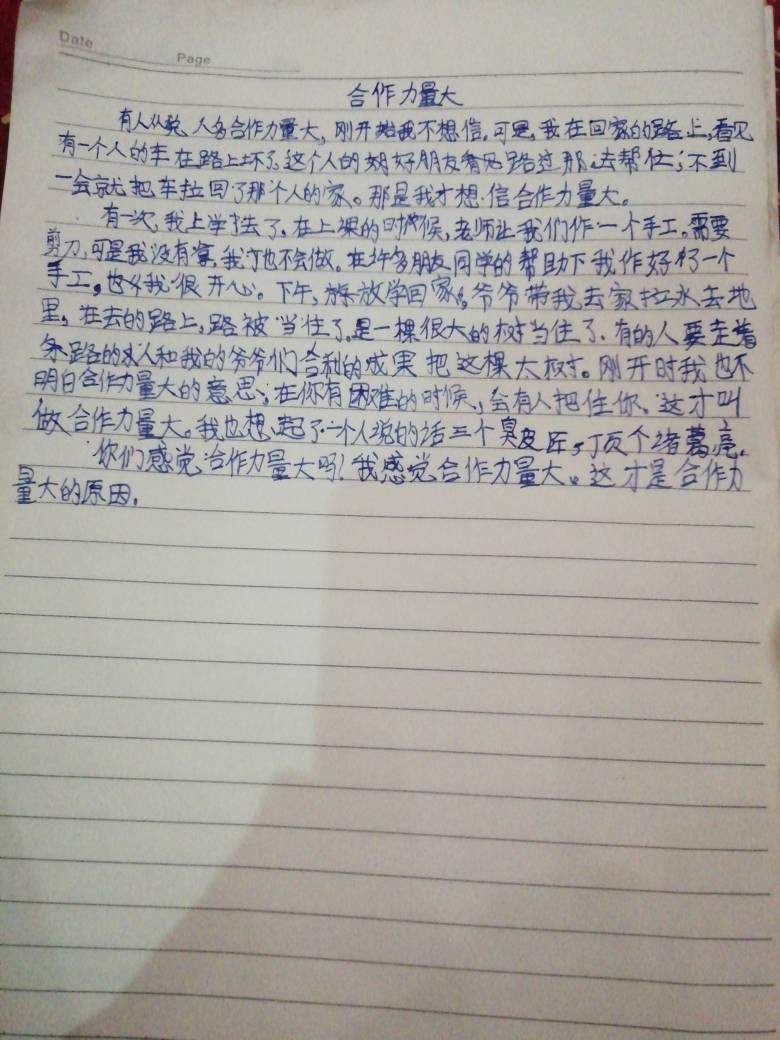 Date
Page
合作力量大
有人从说,人多合作力量大,刚开始我不想信,可是,我在回家的路上,看见
有一个人的车在路上坏了,这个人的好朋友看见路过那去帮忙;不到
一会就把车拉回了那个人的家。那是我才想信合作力量大。
有一次,我上学去了,在上课的时候,老师让我们作一个手工,需要
剪刀,可是我没有拿,我也不会做。在许多朋友同学的帮助下我作好了一个
手工。我很开心。下午,放学回家,爷爷带我去家拉水去地
里,在去的路上,路被当住了,是一棵很大的树当住了,有的人要走着
条路的人和我的爷爷们合利的成果把这棵大树。刚开时我也不
明白合作力量大的意思,在你有困难的时候,会有人把住你,这才叫
做合作力量大。我也想起了一个人说的话三个臭皮匠,丁页个诸葛亮,
你们感觉合作力量大吗!我感觉合作力量大。这才是合作力
量大的原因,